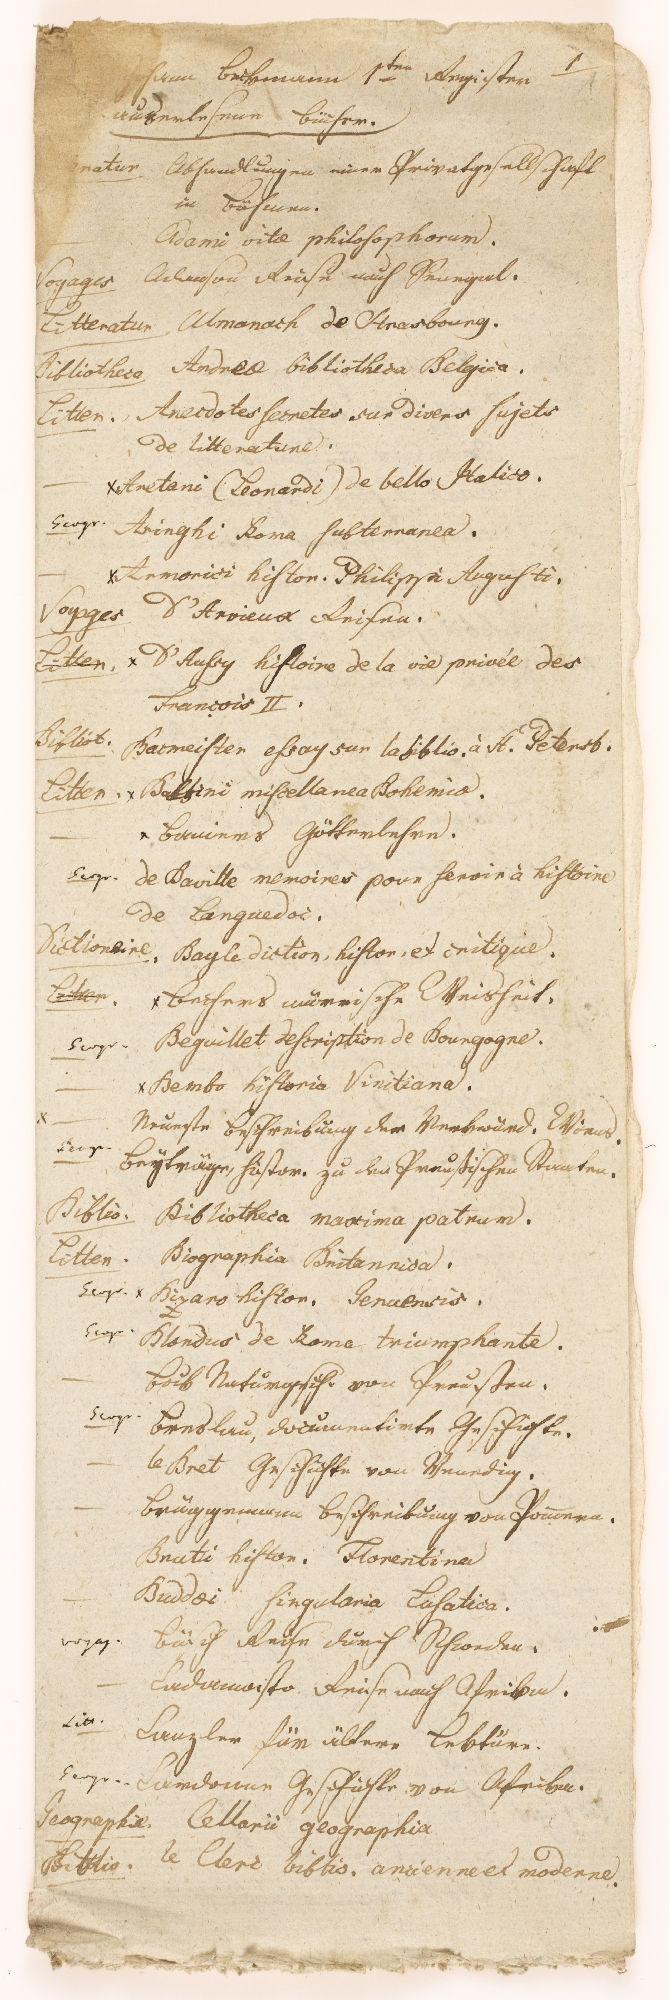 hann Beckmann 1ten Register 1
auserlesene Bücher.
ratur Abhandlungen einer Privatgesellschaft
in Böhmen.
— Adami vitæ philosophorum.
Voyages Adanson Reise nach Senegal.
Litteratur Almanach de Strasbourg.
Bibliotheca Andreæ bibliotheca Belgica.
Litter. Anecdotes secretes sur divers sujets
de litterature.
— x Aretani (Leonardi) de bello Italico.
Geogr. Aringhi Roma subterranea.
— x Armorici histor. Philippi Augusti.
Voyages D'Arvieux Reisen.
Litter. x D'Aussy histoire de la vie privée des
François II.
Bibliot. Bacmeister essay sur la biblio. à St. Petersb.
Litter. x Balbini miscellanea Bohemica.
— x Baniers Götterlehre.
Geogr. de Baville memoires pour servir à histoire
de Languedoc.
Dictionaire. Bayle diction. histor. et critique.
Litter. x Bechers närrische Weisheit.
Geogr. Beguillet description de Bourgogne.
— x Bembo historia Vinitiana.
x — Neueste Beschreibung der Merkwürd. Wiens.
Geogr. Beyträge, histor. zu den Preußischen Staaten.
Biblio. Bibliotheca maxima patrum.
Litter. Biographia Britannica.
Geogr. x Bizaro histor. Genuensis.
Geogr. Blondus de Roma triumphante.
— Bock Naturgesch. von Preussen.
Geogr. Breslau, documentirte Geschichte.
— le Bret Geschichte von Venedig.
— Brüggemann Beschreibung von Pommern.
Bruti histor. Florentina
— Buddæi singularia Lusatica.
voyag. Büsch Reise durch Schweden.
— Cadamosto Reise nach Afrika.
Litt. Canzler für ältere Lektüre.
Geogr. Cardonne Geschichte von Afrika.
Geographie. Cellarii geographia
Biblio. le Clerc biblio. ancienne et moderne.